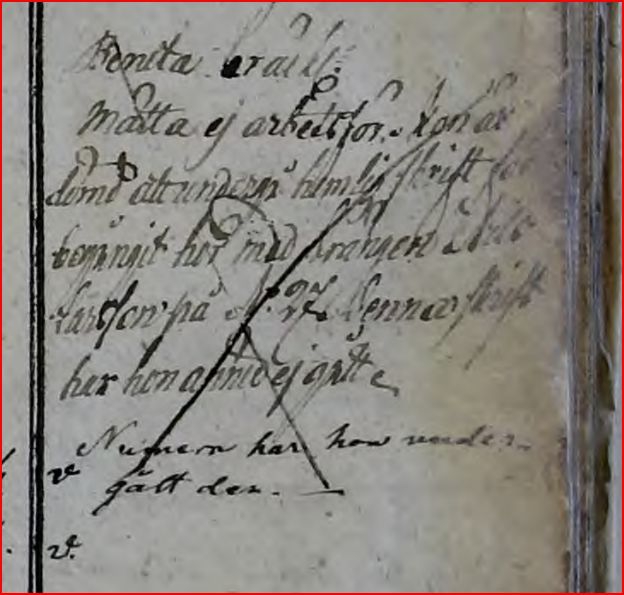 Måtta ej arbetsför. Hon är
dömd att undergå hemlig skrift för
begångit hor med drängen
Larsson på N: 27. Denna skrift
har hon ännu ej gått.
Numern har hon under-
gått den. —